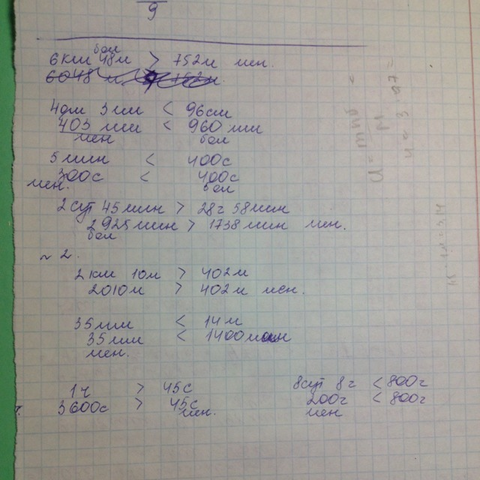 9
бол
6 км 48 м > 752 м мен.
6048 м > 752 м
4 дм 3 мм < 96 см
403 мм < 960 мм
мен бол
5 мин < 400 с
300 с < 400 с
мен. бол
2 сут 45 мин > 28 ч 58 мин
2 925 мин > 1738 мин мен.
бол
~ 2.
2 км 10 м > 402 м
2010 м > 402 м мен.
35 мм < 14 м
35 мм < 1400
мен.
1 ч > 45 с
3600 с > 45 с
мен.
8 сут 8 ч < 800 ч
200 ч < 800 ч
мен